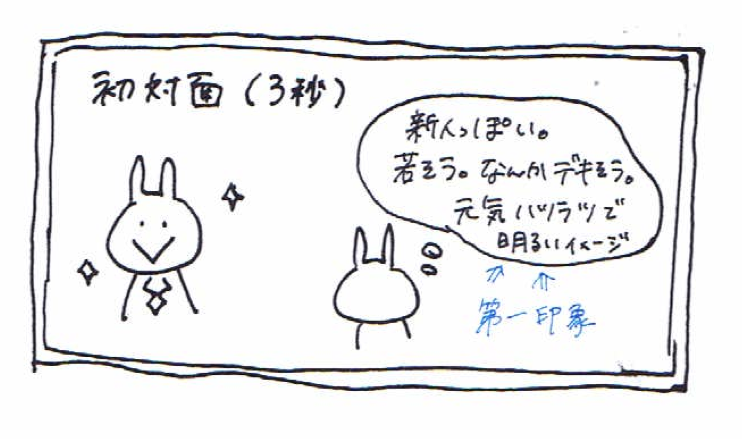 初対面(3秒)
新人っぽい。
若そう。なんかデキそう。
元気ハツラツで
明るいイメージ
第一印象